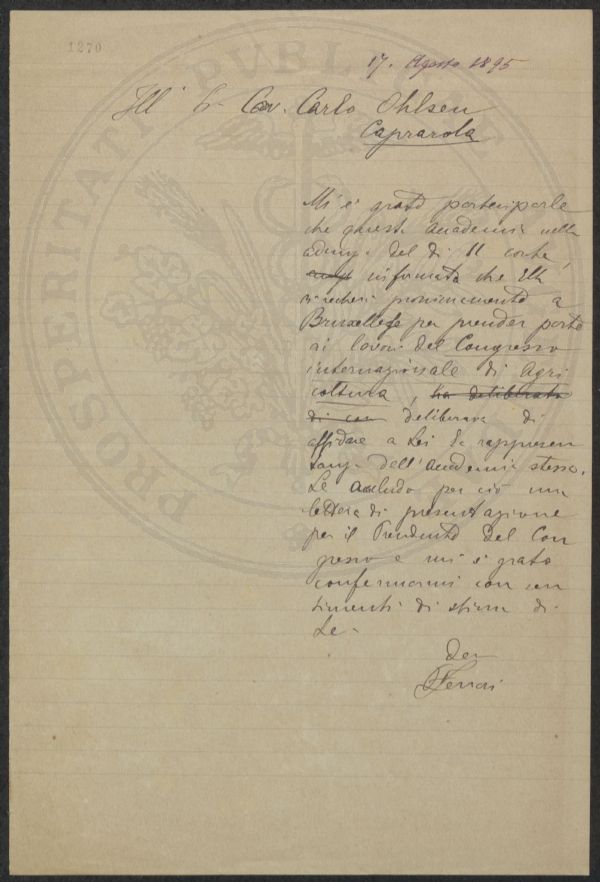 1270
17. Agosto 1895
Ill. S. Cav. Carlo Ohlsen
Caprarola
Mi è grato parteciparle
che questa Accademia nella
adunza del di 11 corte,
informata che Ella
si recherà prossimamente a
Bruxelles per prender parte
ai lavori del Congresso
internazionale di Agri
coltura, ha deliberato
di con deliberava di
affidare a Lei la rappresen
tanza dell'Accademia stessa.
Le accludo per ciò una
lettera di presentazione
per il Presidente del Con
gresso e mi è grato
confermarmi con sen
timenti di stima di
Lei
Dev
Ferrari
PROSPERITATI PUBLICAE